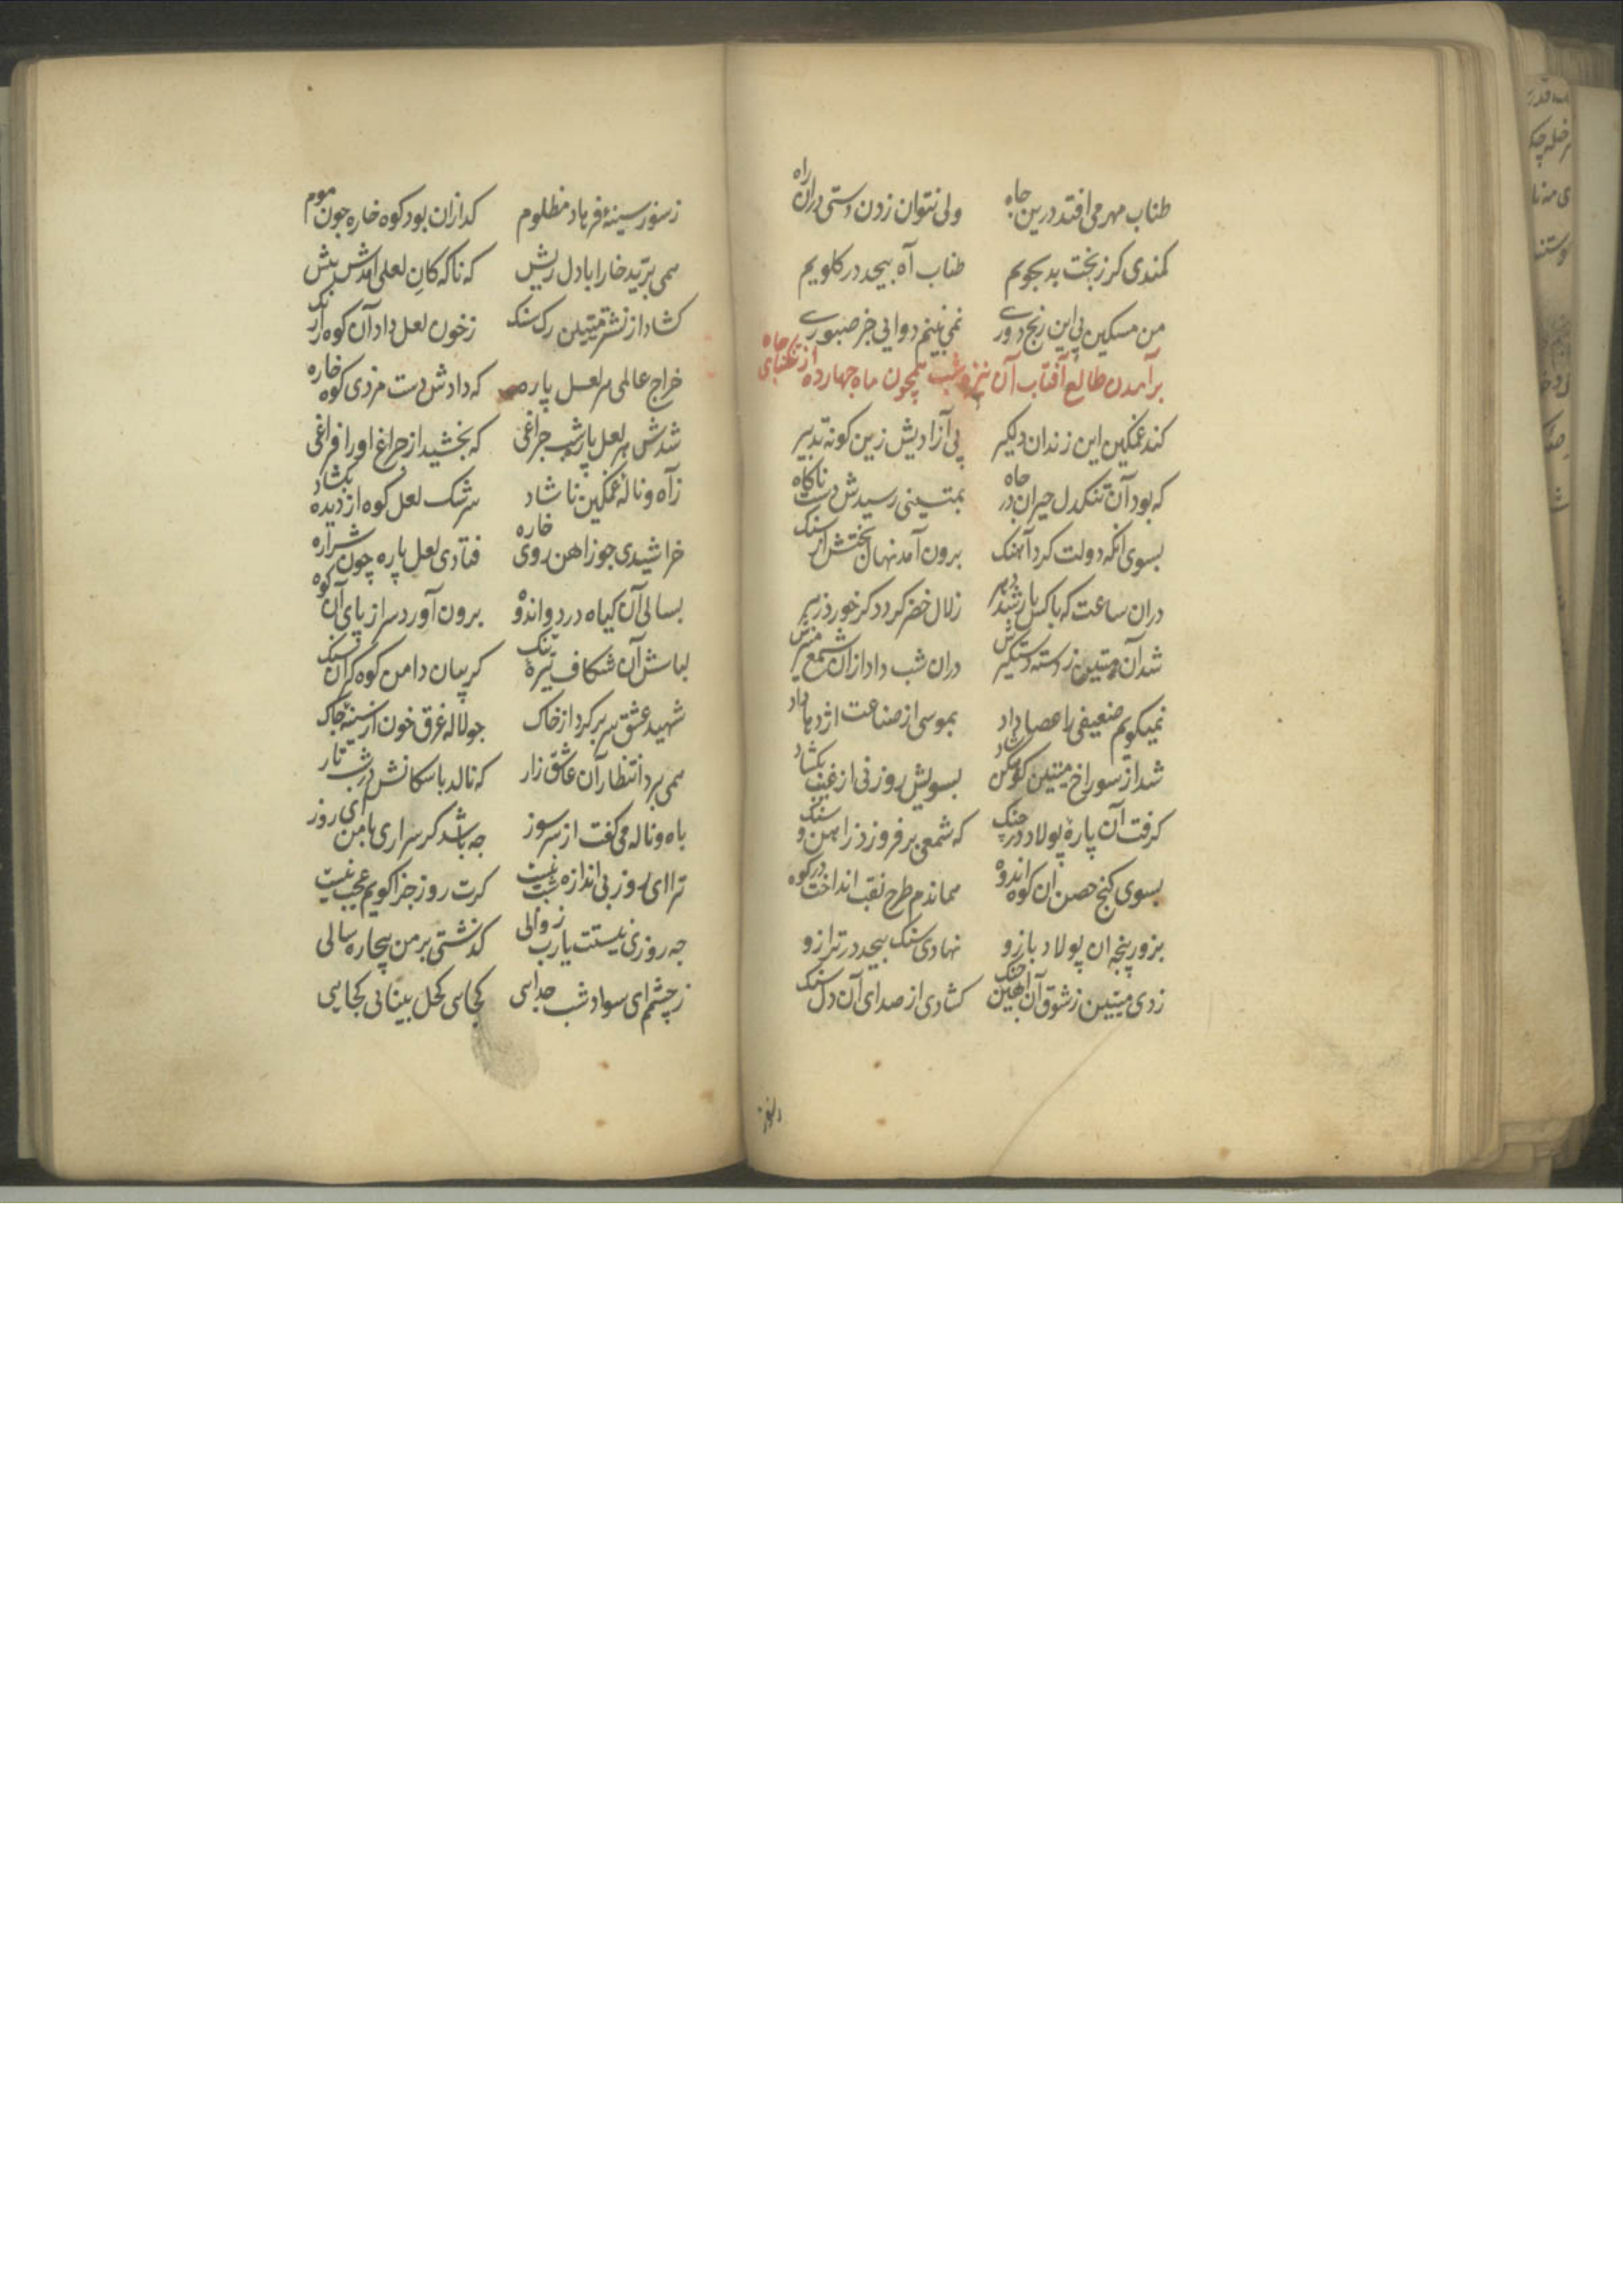 طناب مهر می افتد درین جاه ولی نتوان زدن دستی دران راه
کمندی کر زبخت بد بجویم طناب آه بیجد در کلویم
من مسکین پی این رنج دوری نمی بینم دوایی جز صبوری
برآمدن طالع آفتاب آن تیره شب همچون ماه چهارده از تنکنای جاه
کند غمکین این زندان دلکیر پی آزادیش زین کونه تدبیر
که بود آن تنکدل حیران در جاه بمتینی رسیدش دست ناکاه
بسوی انکه دولت کرد آهنک برون آمد نهان بختش از سنک
دران ساعت که باکس یار شد دهر زلال خضر کردد کر خورد زهر
شد آن متین ز دسته دستکیرش دران شب داد ازان شمع منیرش
نمیکویم ضعیفی را عصا داد بموسی از صناعت اژدها داد
شد از سوراخ متین کوهکن شاد بسویش روزنی از غیب بکشاد
کرفت آن پارهٔ پولاد در جنک که شمعی بر فروزد ز اهن و سنک
بسوی کنج حصن ان کوه اندوه هماندم طرح نقب انداخت در کوه
بزور پنجه ان پولاد بازو نهادی سنک بیجد در ترازو
زدی متین ز شوق آن اهنین جنک کشادی از صدای آن دل سنک
ز سوز سینهٔ فرهاد مظلوم کدازان بود کوه خاره جون موم
همی برید خارا با دل ریش که ناکه کان لعلی امدش پیش
کشاد از نشتر متین رک سنک زخون لعل داد آن کوه را رنک
خراج عالمی هر لعل پاره که دادش دست مزدی کوه خاره
شدش هر لعل پاره شب جراغی که بخشید از جراغ او را فراغی
زآه و نالهٔ غمکین ناشاد سرشک لعل کوه از دیده بکشاد
خراشیدی جو ز اهن روی خاره فتادی لعل پاره چون شراره
بسالی آن کیاه درد و اندوه برون آورد سر از پای آن کوه
لباش آن شکاف تیرهٔ تنک کریبان دامن کوه کران سنک
شهید عشق سر بر کرد از خاک جو لاله غرق خون از سینهٔ جاک
همی برد انتظار آن عاشق زار که نالد با سکانش در شب تار
باه و ناله می کفت از سر سوز جه باشد کر سراری با من ای روز
ترا ای روز بی اندازه شب نیست کرت روز جزا کویم عجب نیست
جه روزی نیستت یارب زوالی کذشتی بر من بیچاره سالی
زچشم ای سواد شب جدایی کجایی کحل بینایی کجایی